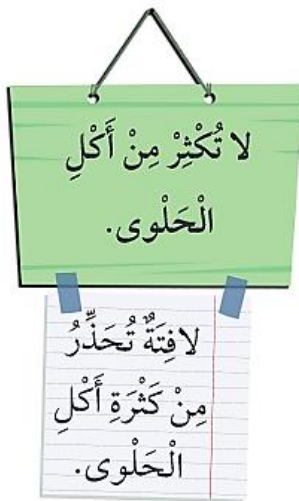 لا تُكْثِرْ مِنْ أَكْلِ
الْحَلْوى.
لافِتَةٌ تُحَذِّرُ
مِنْ كَثْرَةِ أَكْلِ
الْحَلْوى.